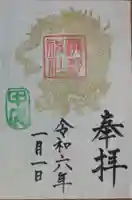 奉拝
令和六年
一月一日
甲辰